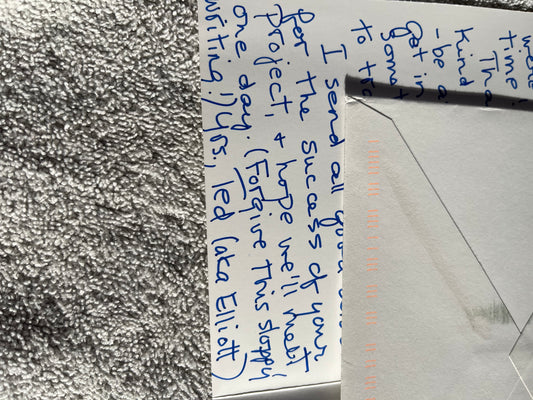 were
time!
Tha
- be a
Kind
get in
Somet
to
I send all
for the success of your
project, & hope we'll meet
one day. (Forgive This sloppy
writing!) Yrs, Ted (aka Elliott)